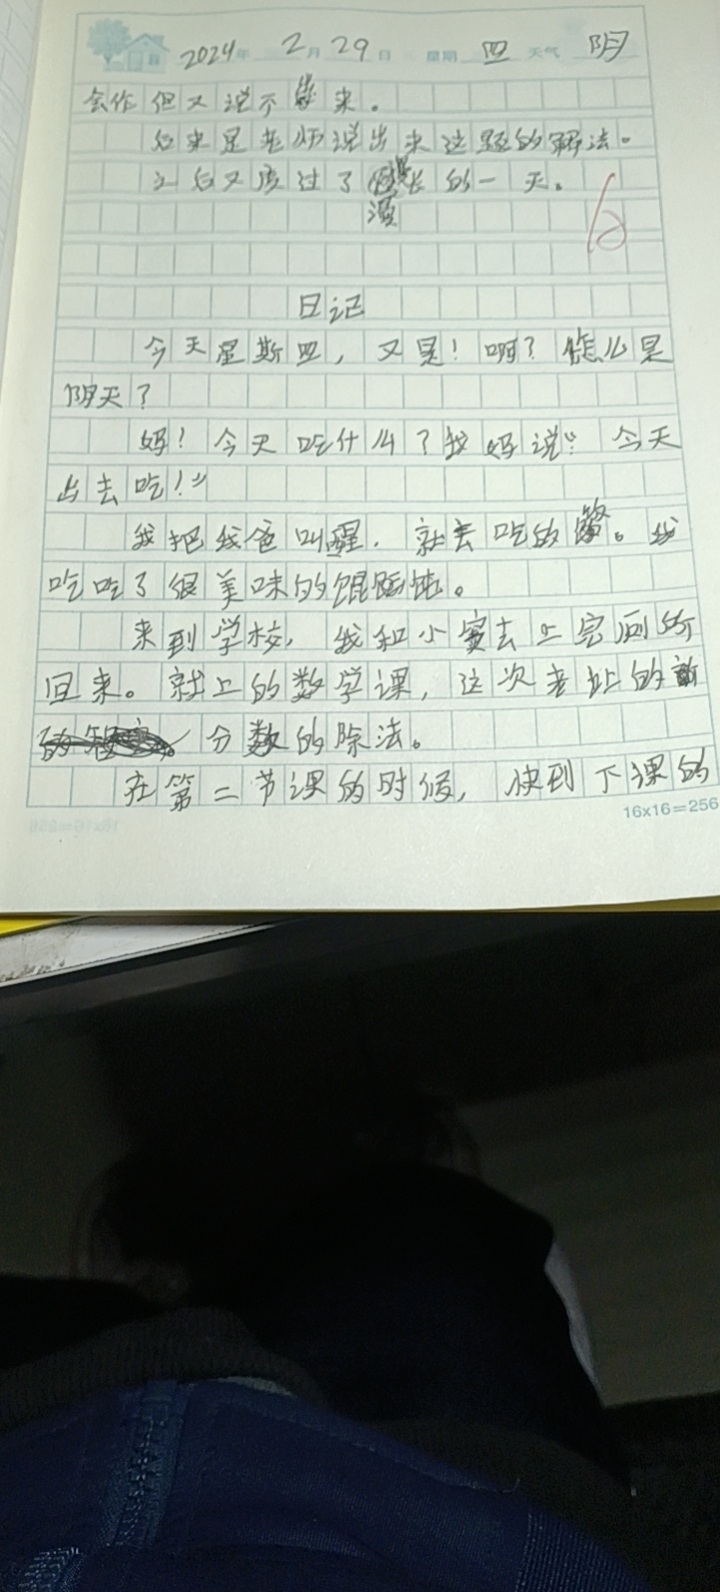 2024年 2月29日 星期 四 天气 阴
会作但又说不出来。
后来是老师说出来这题的解法。
之后又度过了漫长的一天。
日记
今天星斯四,又是!啊?怎么是
阴天?
妈!今天吃什么?我妈说:“今天
出去吃!”
我把我爸叫醒,就去吃的饭。我
吃吃了很美味的馄饨。
来到学校,我和小宝去上完厕所
回来。就上的数学课,这次老师的
分数的除法。
在第二节课的时候,快到下课的
16x16=256